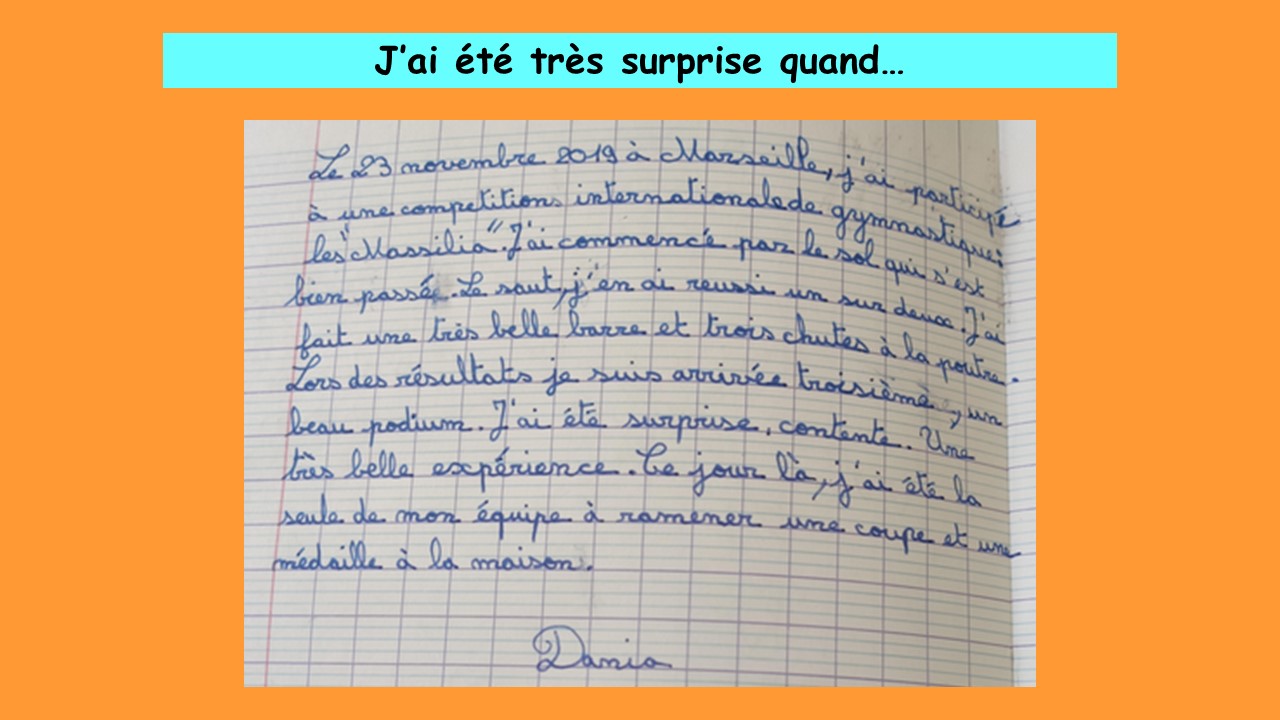 J'ai été très surprise quand...
Le 23 novembre 2019 à Marseille, j'ai participé
à une competitions internationale de gymnastique:
les "Massilia". J'ai commencé par le sol qui s'est
bien passé. Le saut, j'en ai reussi un sur deux. J'ai
fait une très belle barre et trois chutes à la poutre.
Lors des résultats je suis arrivée troisième, un
beau podium. J'ai été surprise, contente. Une
très belle expérience. Ce jour là, j'ai été la
seule de mon équipe à ramener une coupe et une
médaille à la maison.
Dania